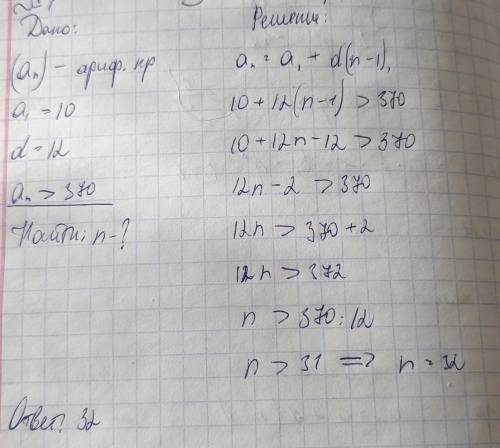 Дано:
(aₙ) – ариф. пр
a₁ = 10
d = 12
aₙ > 370
Найти: n - ?
Решение:
aₙ = a₁ + d(n-1),
10 + 12(n-1) > 370
10 + 12n - 12 > 370
12n - 2 > 370
12n > 370 + 2
12n > 372
n > 370 : 12
n > 31 => n = 32
Ответ: 32